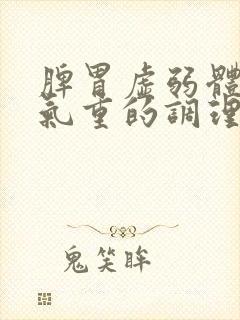 脾胃虛弱體
氣重的調理
鬼笑眸